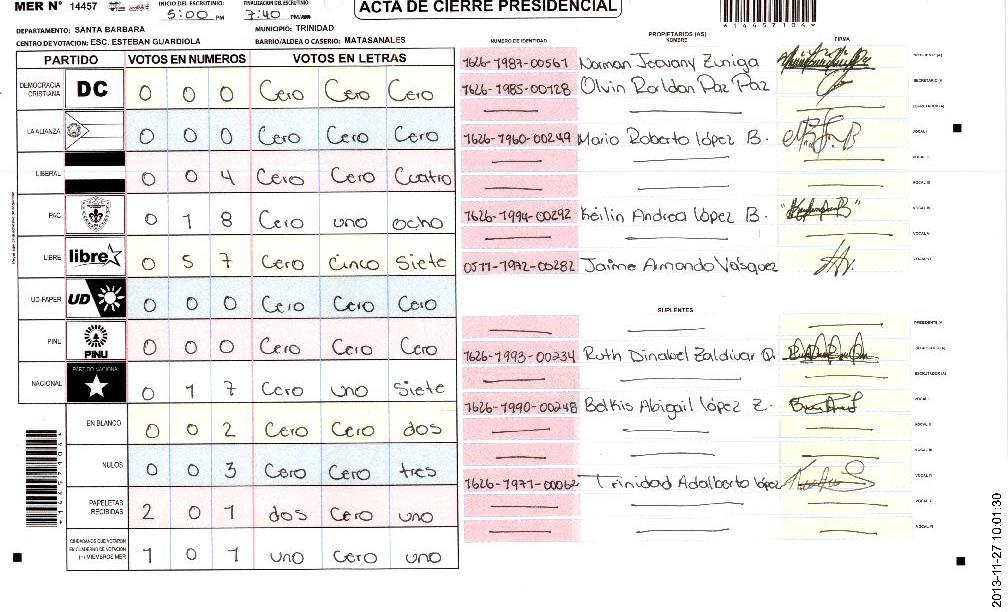 MER N° 14457
INICIO DEL ESCRUTINIO: 5:00 PM
FINALIZACION DEL ESCRUTINIO: 7:40 PM
ACTA DE CIERRE PRESIDENCIAL
*14457104*
DEPARTAMENTO: SANTA BARBARA
MUNICIPIO: TRINIDAD
CENTRO DE VOTACION: ESC. ESTEBAN GUARDIOLA
BARRIO/ALDEA O CASERIO: MATASANALES
PARTIDO VOTOS EN NUMEROS VOTOS EN LETRAS
DEMOCRACIA CRISTIANA DC 0 0 0 Cero Cero Cero
LA ALIANZA 0 0 0 Cero Cero Cero
LIBERAL 0 0 4 Cero Cero Cuatro
PAC 0 1 8 Cero uno ocho
LIBRE libre 0 5 7 Cero Cinco Siete
UD-FAPER UD 0 0 0 Cero Cero Cero
PINU PINU 0 0 0 Cero Cero Cero
NACIONAL PARTIDO NACIONAL 0 1 7 Cero uno Siete
EN BLANCO 0 0 2 Cero Cero dos
NULOS 0 0 3 Cero Cero tres
PAPELETAS RECIBIDAS 2 0 1 dos Cero uno
CIUDADANOS QUE VOTARON EN CUADERNO DE VOTACION (+) MIEMBROS MER 1 0 1 uno Cero uno
*14457104*
NUMERO DE IDENTIDAD PROPIETARIOS (AS) NOMBRE FIRMA
1626-1987-00561 Norman Jeovany Zuniga PRESIDENTE (A)
1626-1985-00128 Olvin Rorldan Paz Paz SECRETARIO (A)
ESCRUTADOR (A)
1626-1960-00249 Mario Roberto lópez B. VOCAL I
VOCAL II
VOCAL III
1626-1994-00292 Keilin Andrea lópez B. VOCAL IV
VOCAL V
0511-1972-00282 Jaime Armando Vásquez VOCAL VI
SUPLENTES
PRESIDENTE (A)
1626-1993-00234 Ruth Dinabel Zaldivar SECRETARIO (A)
ESCRUTADOR (A)
1626-1990-00248 Belkis Abigail lópez Z. VOCAL I
VOCAL II
VOCAL III
1626-1971-00062 Trinidad Adalberto lópez VOCAL IV
VOCAL V
VOCAL VI
2013-11-27 10:01:30